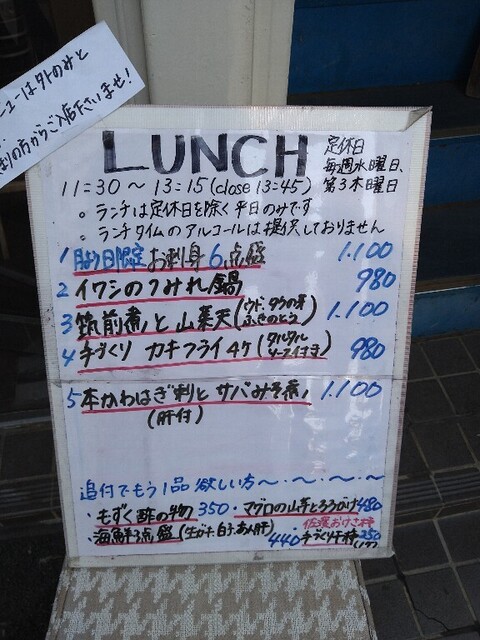 ニューは外のみと
まりの方からご入店下さいませ!
LUNCH
定休日
毎週水曜日、
第3木曜日
11:30〜13:15(close 13:45)
。ランチは定休日を除く平日のみです
。ランチタイムのアルコールは提供しておりません
1 月木日限定 お刺身6点盛 1.100
2 イワシのつみれ鍋 980
3 筑前煮と山菜天(ウド・タラの芽 ふきのとう) 1.100
4 手づくり カキフライ4ケ(タルタル ソース付き) 980
5 本かわはぎ刺とサバみそ煮 1.100
(肝付)
追付でもう1品 欲しい方〜・〜・〜・〜
・もずく酢の物 350 ・マグロの山芋とろろがけ 480
海鮮3点盛(生ガキ・白子・あん肝) 440
佐渡おけさ柿
手づくり干柿 250